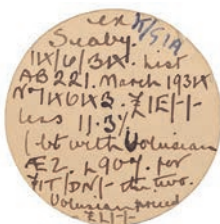 ex R/GIA
Seaby.
1X/6/3X. List
AB 221. March 193X
No 1X6X3. £1E/-/-
less 11.3%
(bt with Volusian
Æ2. L907. for
£1T/DN/- the two.
Volusian priced
£L/-/-